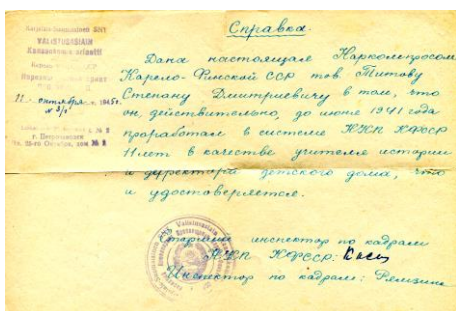 VALISTUSASIAIN
11 октября 1945г.
г. Петрозаводск
Справка.
Дана настоящая Наркомпросом
Карело-Финской ССР тов. Титову
Степану Дмитриевичу в том, что
он, действительно, до июня 1941 года
проработал в системе НКП КФССР
11 лет в качестве учителя истории
и директора детского дома, что
и удостоверяется.
Старший инспектор по кадрам
НКП КФССР:
Инспектор по кадрам: